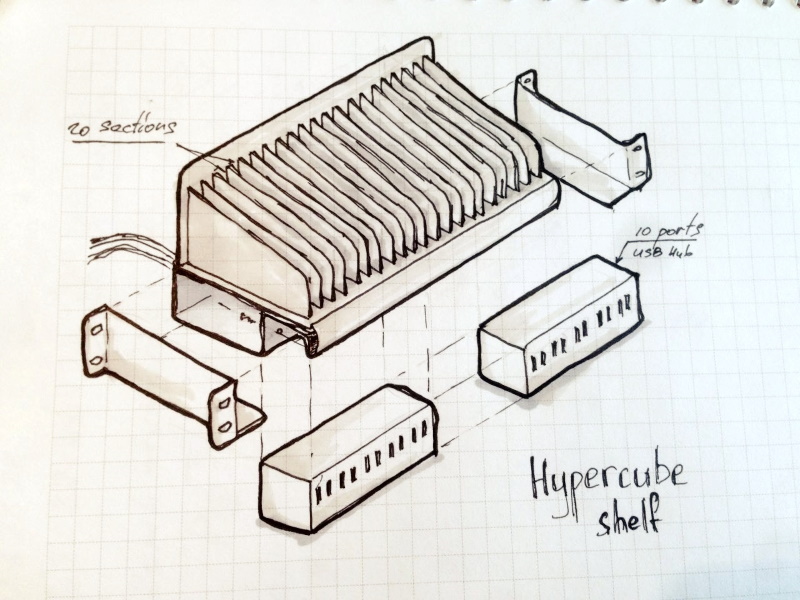 20 sections
10 ports
USB Hub
Hypercube
shelf